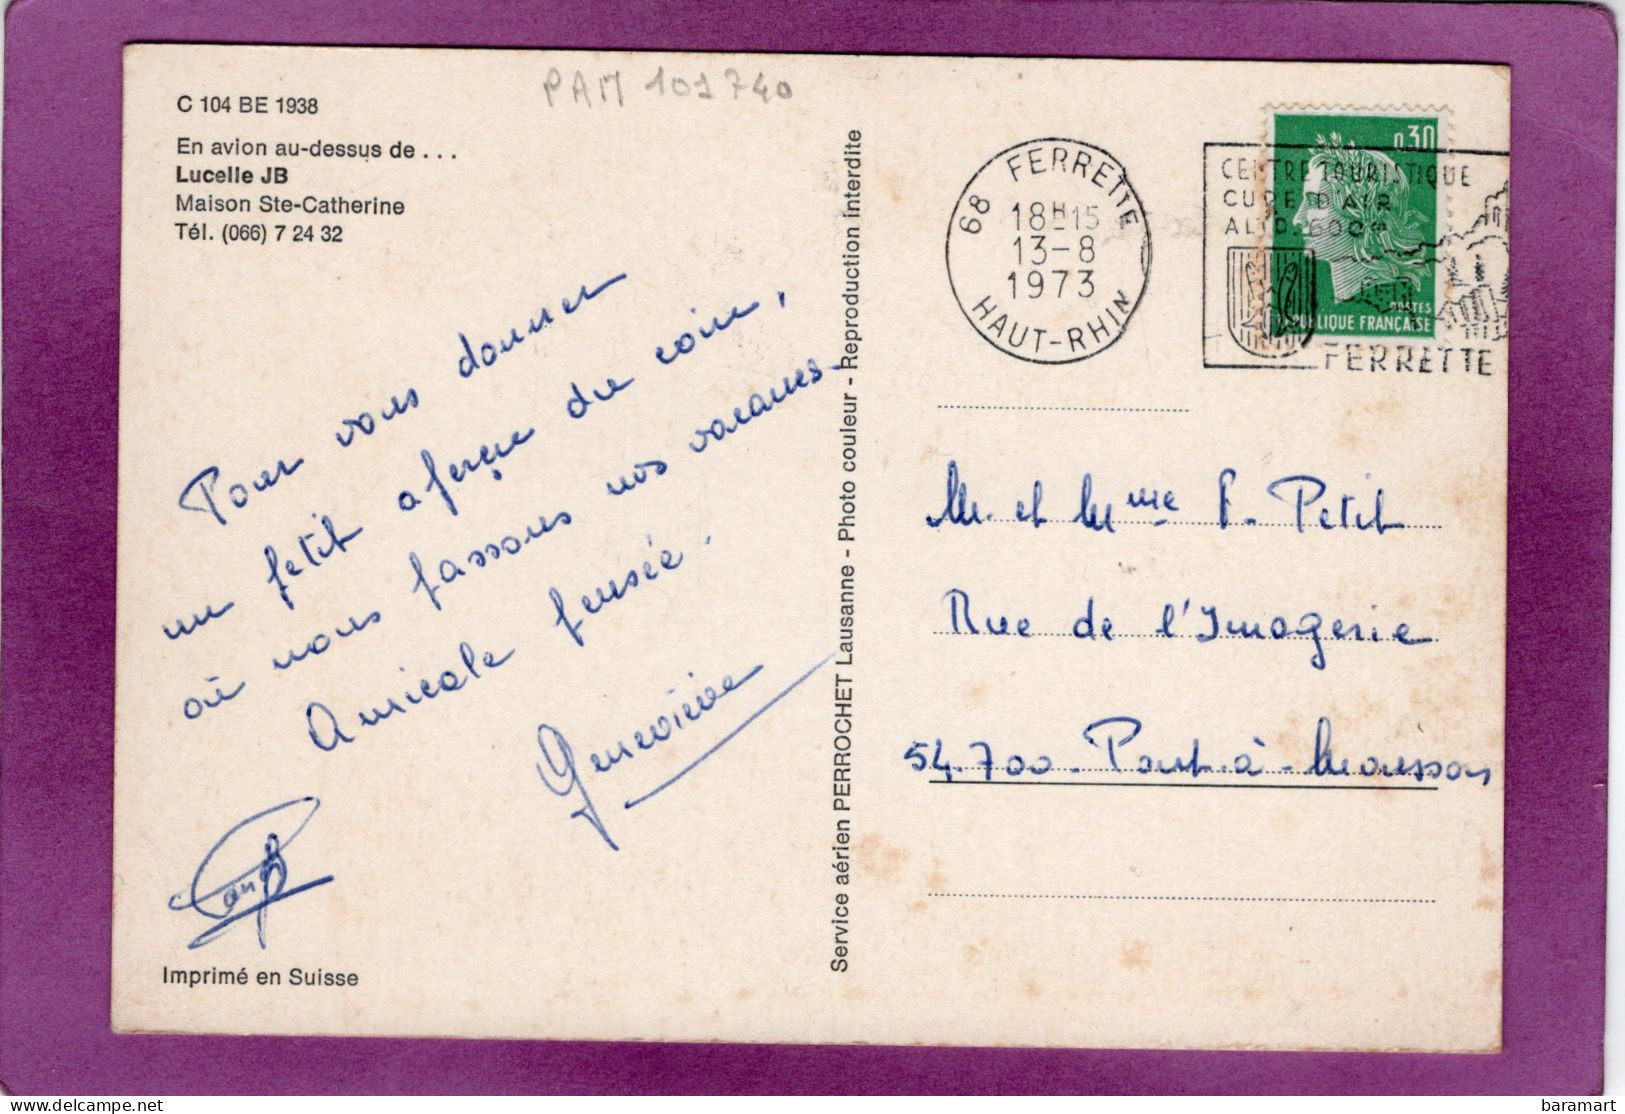 PAM 101740
C 104 BE 1938
En avion au-dessus de . . .
Lucelle JB
Maison Ste-Catherine
Tél. (066) 7 24 32
Pour vous donner
un petit aperçu du coin,
où nous passons nos vacances.
Amicale pensée.
Geneviève
Imprimé en Suisse
Service aérien PERROCHET Lausanne - Photo couleur - Reproduction interdite
68 FERRETTE
18H15
13-8
1973
HAUT-RHIN
0,30
POSTES
REPUBLIQUE FRANÇAISE
CENTRE TOURISTIQUE
CURE D'AIR
ALTD. 600m
FERRETTE
M. et Mme P. Petit
Rue de l'Imagerie
54.700 - Pont-à-Mousson
baramart